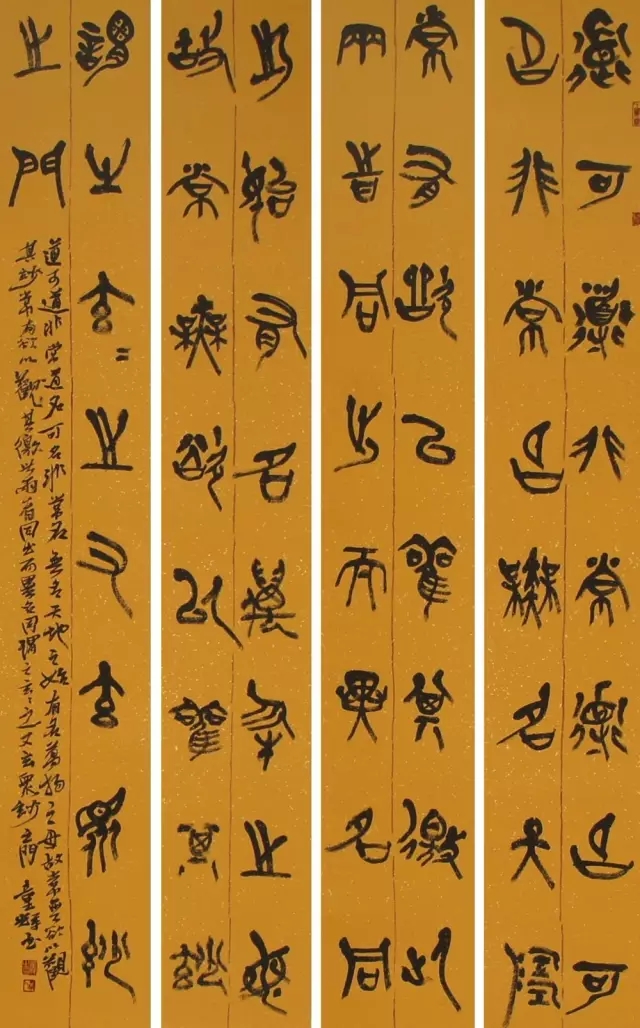 道可道非常道名可
名非常名無名天地
常有欲以觀其徼此
兩者同出而異名同
之始有名萬物之母
故常無欲以觀其妙
謂之玄〻之又玄眾妙
之門
道可道非常道名可名非常名無名天地之始有名萬物之母故常無欲以觀
其妙常有欲以觀其徼此兩者同出而異名同謂之玄〻之又玄眾妙之門